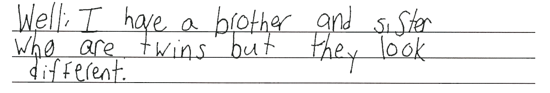 Well, I have a brother and sister
who are twins but they look
different.